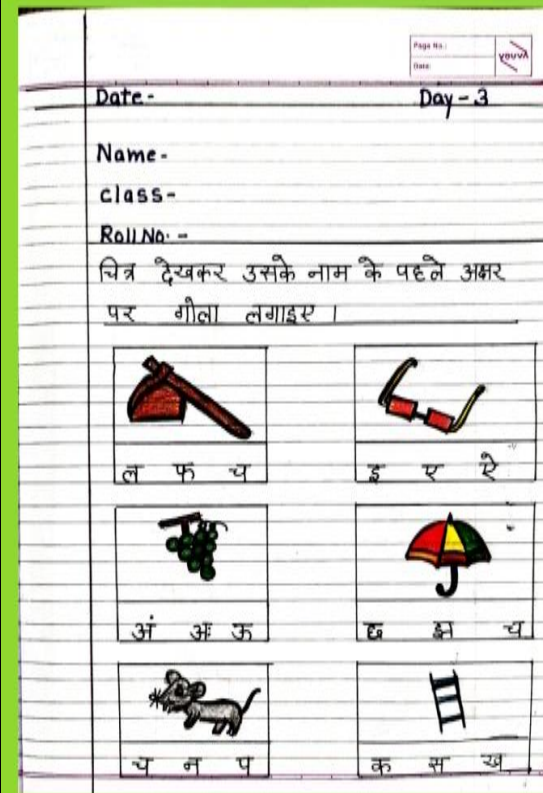 Page No.:
Date:
YOUVA
Date - Day - 3
Name -
class -
Roll No. -
चित्र देखकर उसके नाम के पहले अक्षर
पर गोला लगाइए ।
ल फ च इ ए ऐ
अं अः ऊ छ झ च
च न प क स ख